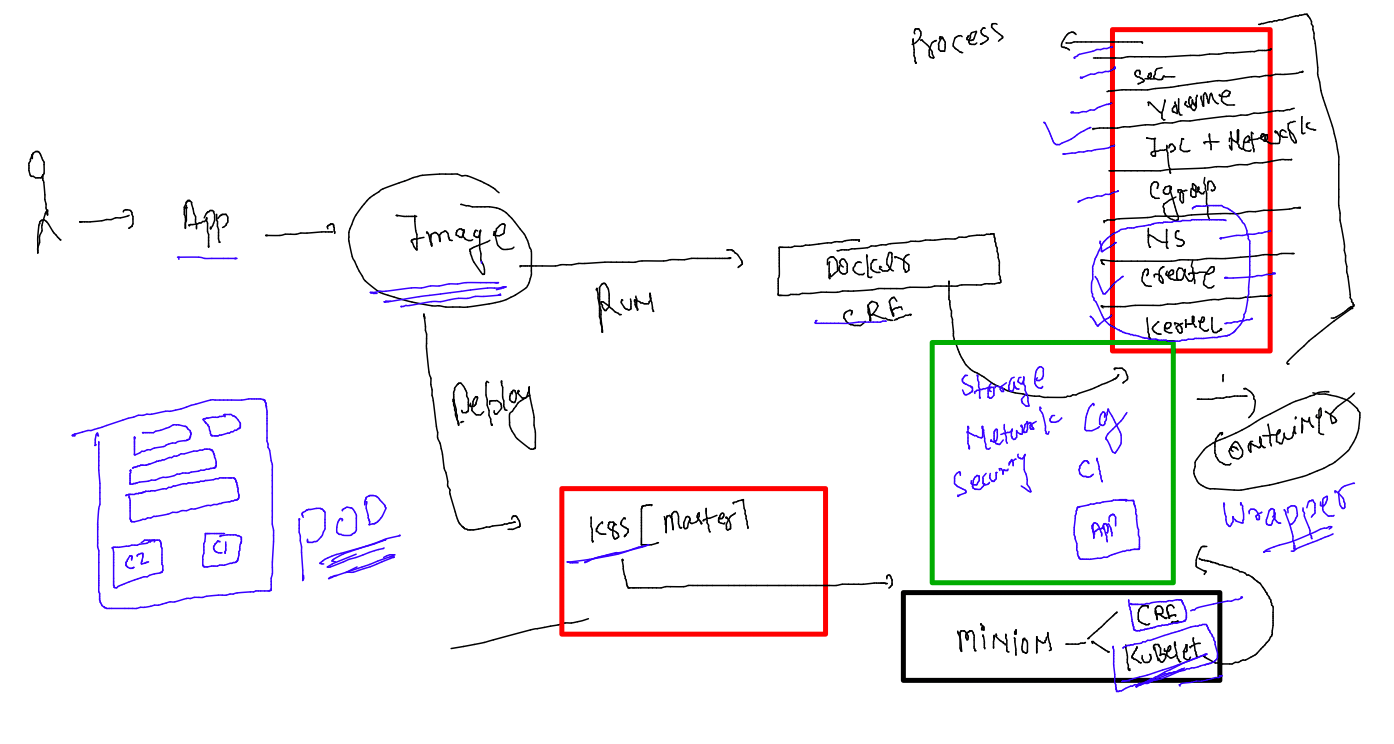 Process
sec
Volume
Ipc + Network
Cgroup
NS
create
Kernel
App
Image
Run
Docker
CRE
Deploy
Storage
Network
Security
Cg
C1
App
Container
Wrapper
C2
C1
POD
K8s [Master]
Minion
CRE
Kubelet